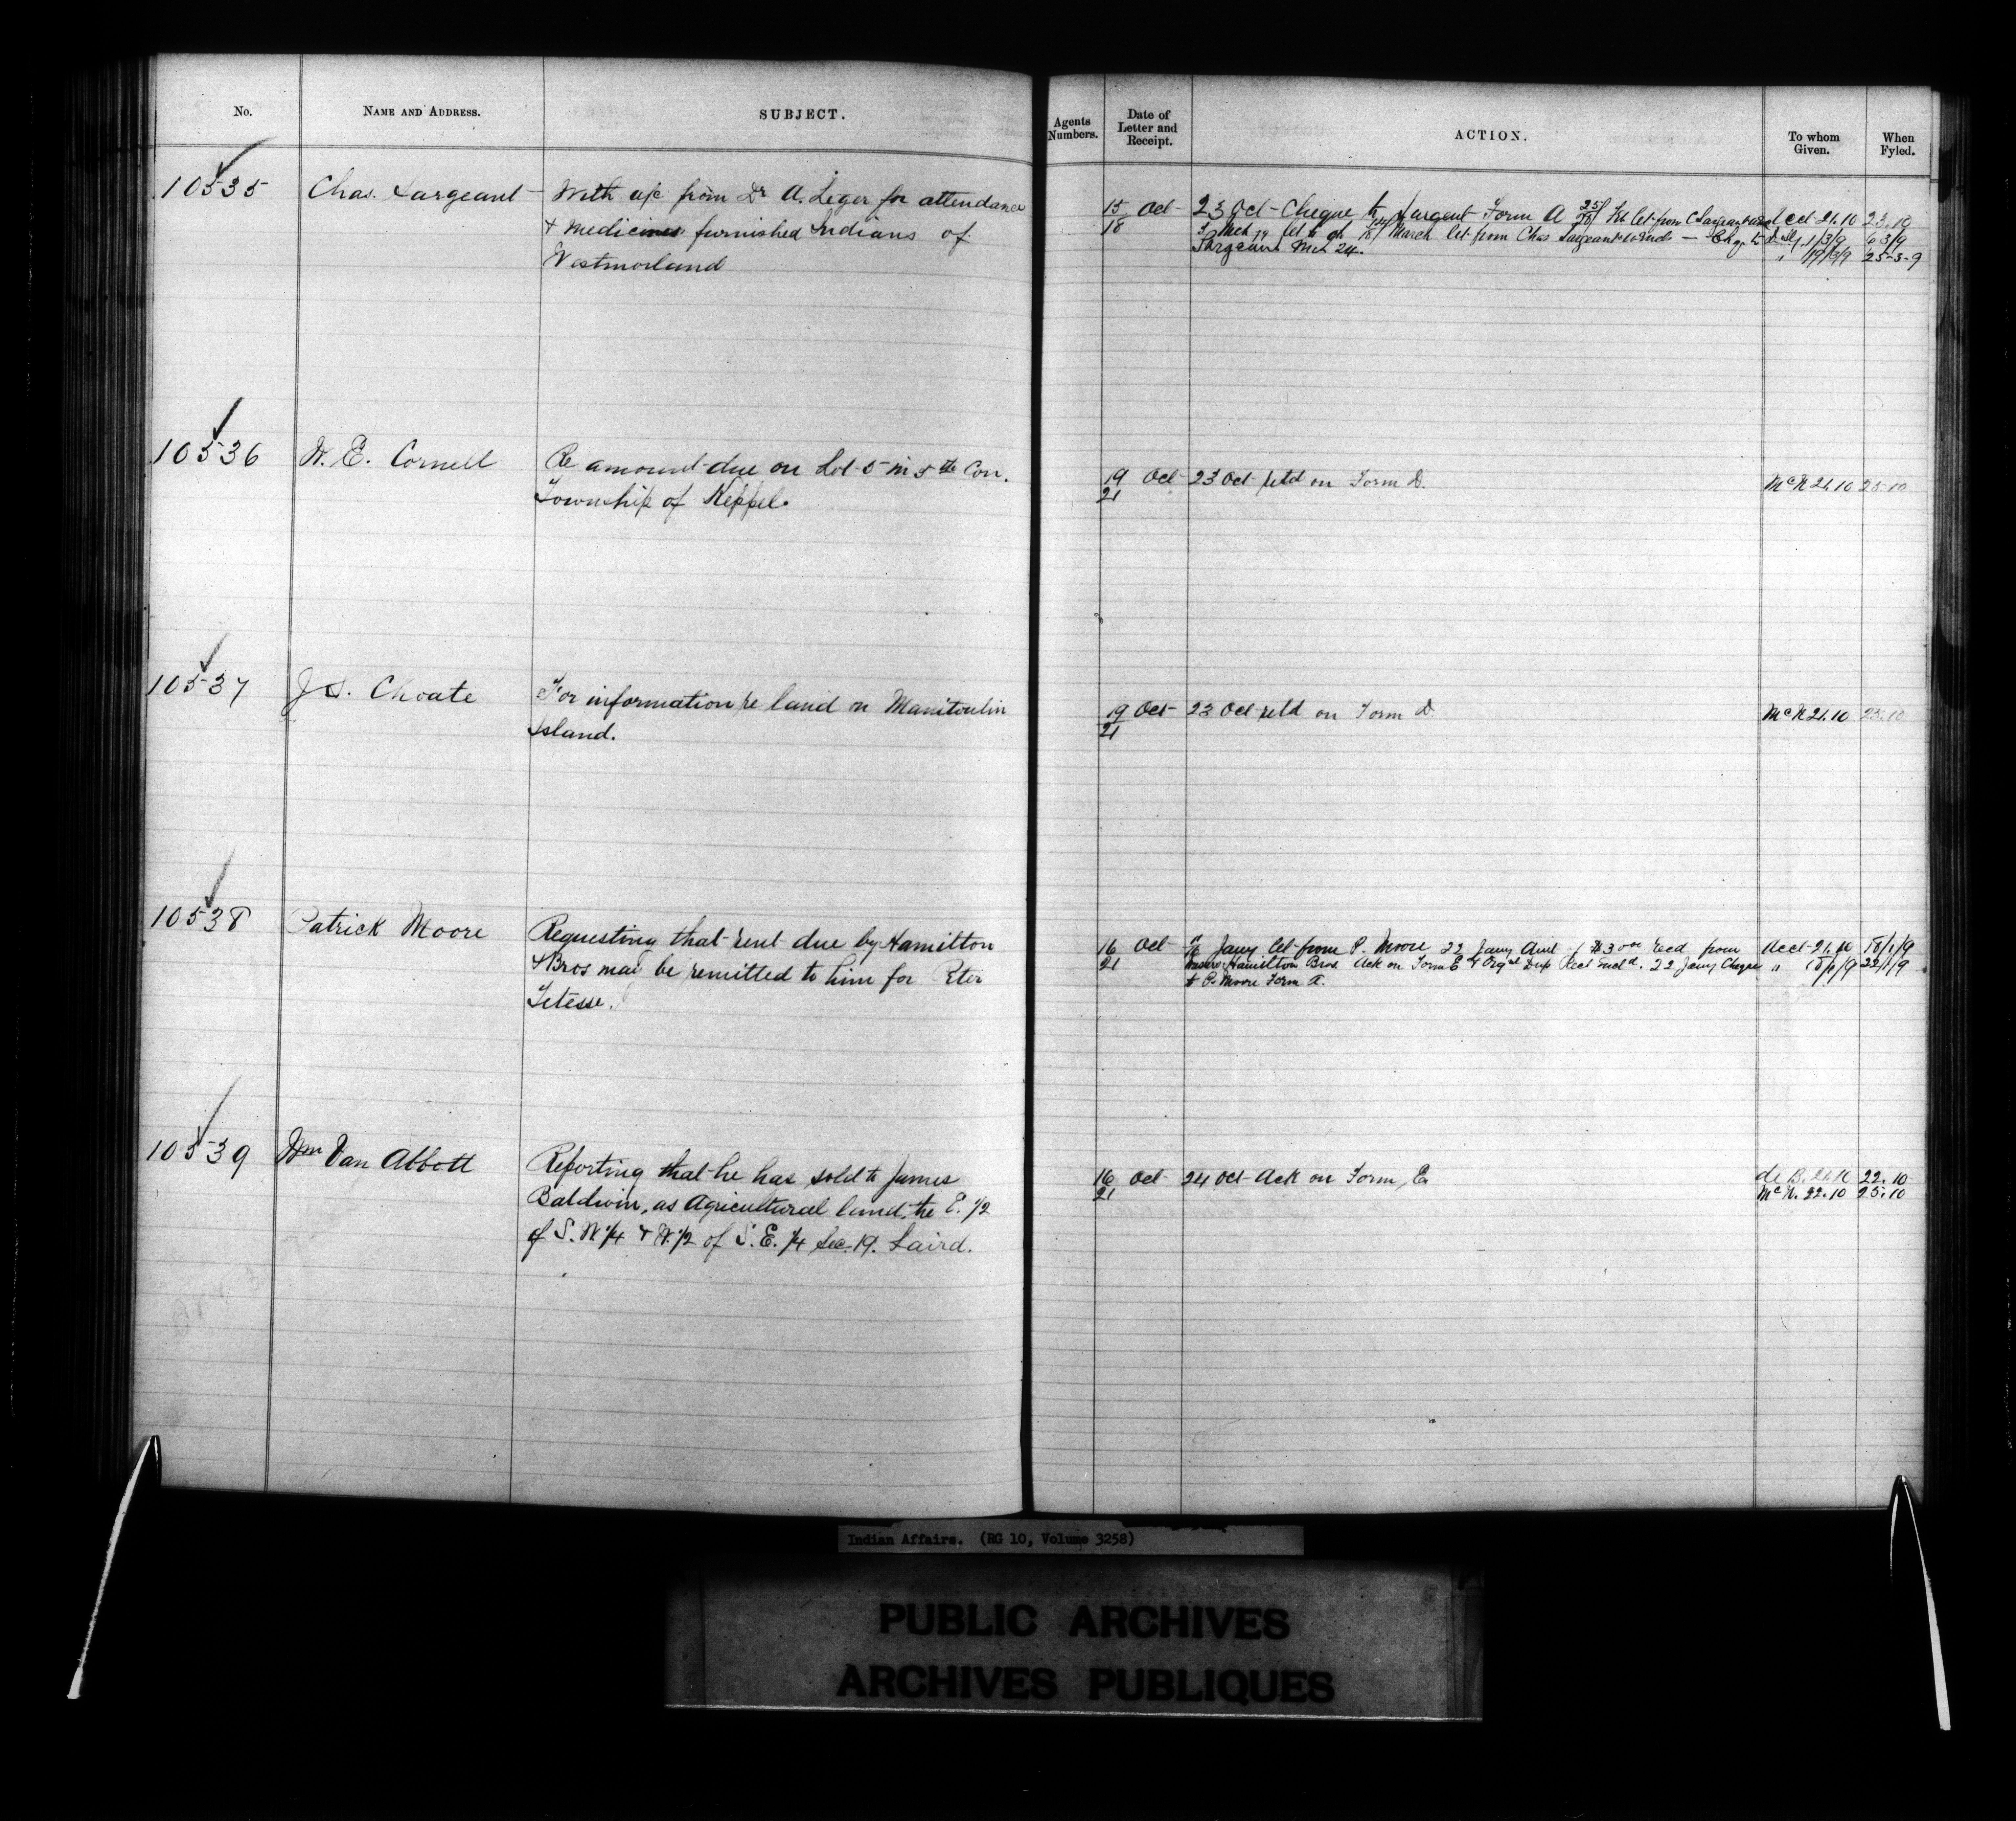 No. NAME AND ADDRESS. SUBJECT. Agents Numbers. Date of Letter and Receipt. ACTION. To whom Given. When Fyled.
10535 Chas. Sargeant With a/c from Dr A. Leger for attendance
& medicines furnished Indians of
Westmorland
15 Oct 23 Oct - Cheque to Sargent Form A 25/28 Feb let from C Sargeant Acct 21.10 23.10
18 March let from Chas Sargeant 1/3/9 6 3/9
Sargeant Mch 24. " 19/3/9 25-3-9
10536 W. E. Cornell Re amount due on Lot 5 in 5th Con.
Township of Keppel.
19 Oct 23 Oct retd on Form D. McN 21.10 25.10
21
10537 J S. Choate For information re land on Manitoulin
Island.
19 Oct 23 Oct retd on Form D. McN 21.10 23.10
21
10538 Patrick Moore Requesting that rent due by Hamilton
& Bros may be remitted to him for Peter
Tetesse.
16 Oct Jany let from P. Moore 22 Jany Amt of $3 00 recd from Acct 21.10 18/1/9
21 Hamilton Bros. Ack on Form E & Orgnl Dup Rect Encld. 22 Jany Cheque " 18/1/9 22/1/9
to P. Moore Form A.
10539 Wm Van Abbott Reporting that he has sold to James
Baldwin, as Agricultural land, the E. 1/2
of S. W 1/4 & W. 1/2 of S. E. 1/4 Sec. 19. Laird.
16 Oct 24 Oct Ack on Form E de B. 21.10 22.10
21 McN. 22.10 25.10
Indian Affairs. (RG 10, Volume 3258)
PUBLIC ARCHIVES
ARCHIVES PUBLIQUES